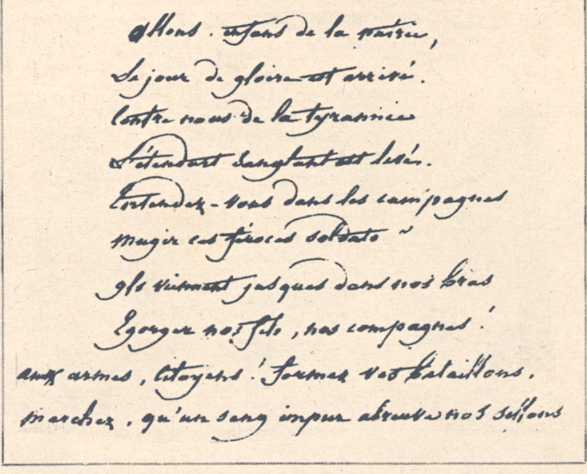 allons . enfans de la patrie,
Le jour de gloire est arrivé.
Contre nous de la tyrannie
L'étendart sanglant est levé.
Entendez-vous dans les campagnes
mugir ces féroces soldats
ils viennent jusques dans nos bras
Egorger nos fils, nos compagnes !
aux armes, citoyens ! formez vos bataillons.
marchez, qu'un sang impur abreuve nos sillons